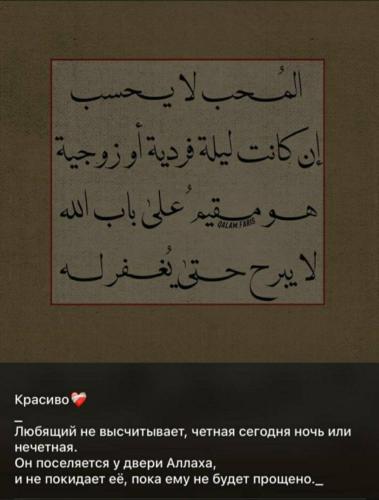 المُحب لا يحسب
إن كانت ليلة فردية أو زوجية
هو مقيمُ على باب الله
QALAM.FARIS
لا يبرح حتىٰ يُغفر له
Красиво❤️‍🩹
_
Любящий не высчитывает, четная сегодня ночь или
нечетная.
Он поселяется у двери Аллаха,
и не покидает её, пока ему не будет прощено._